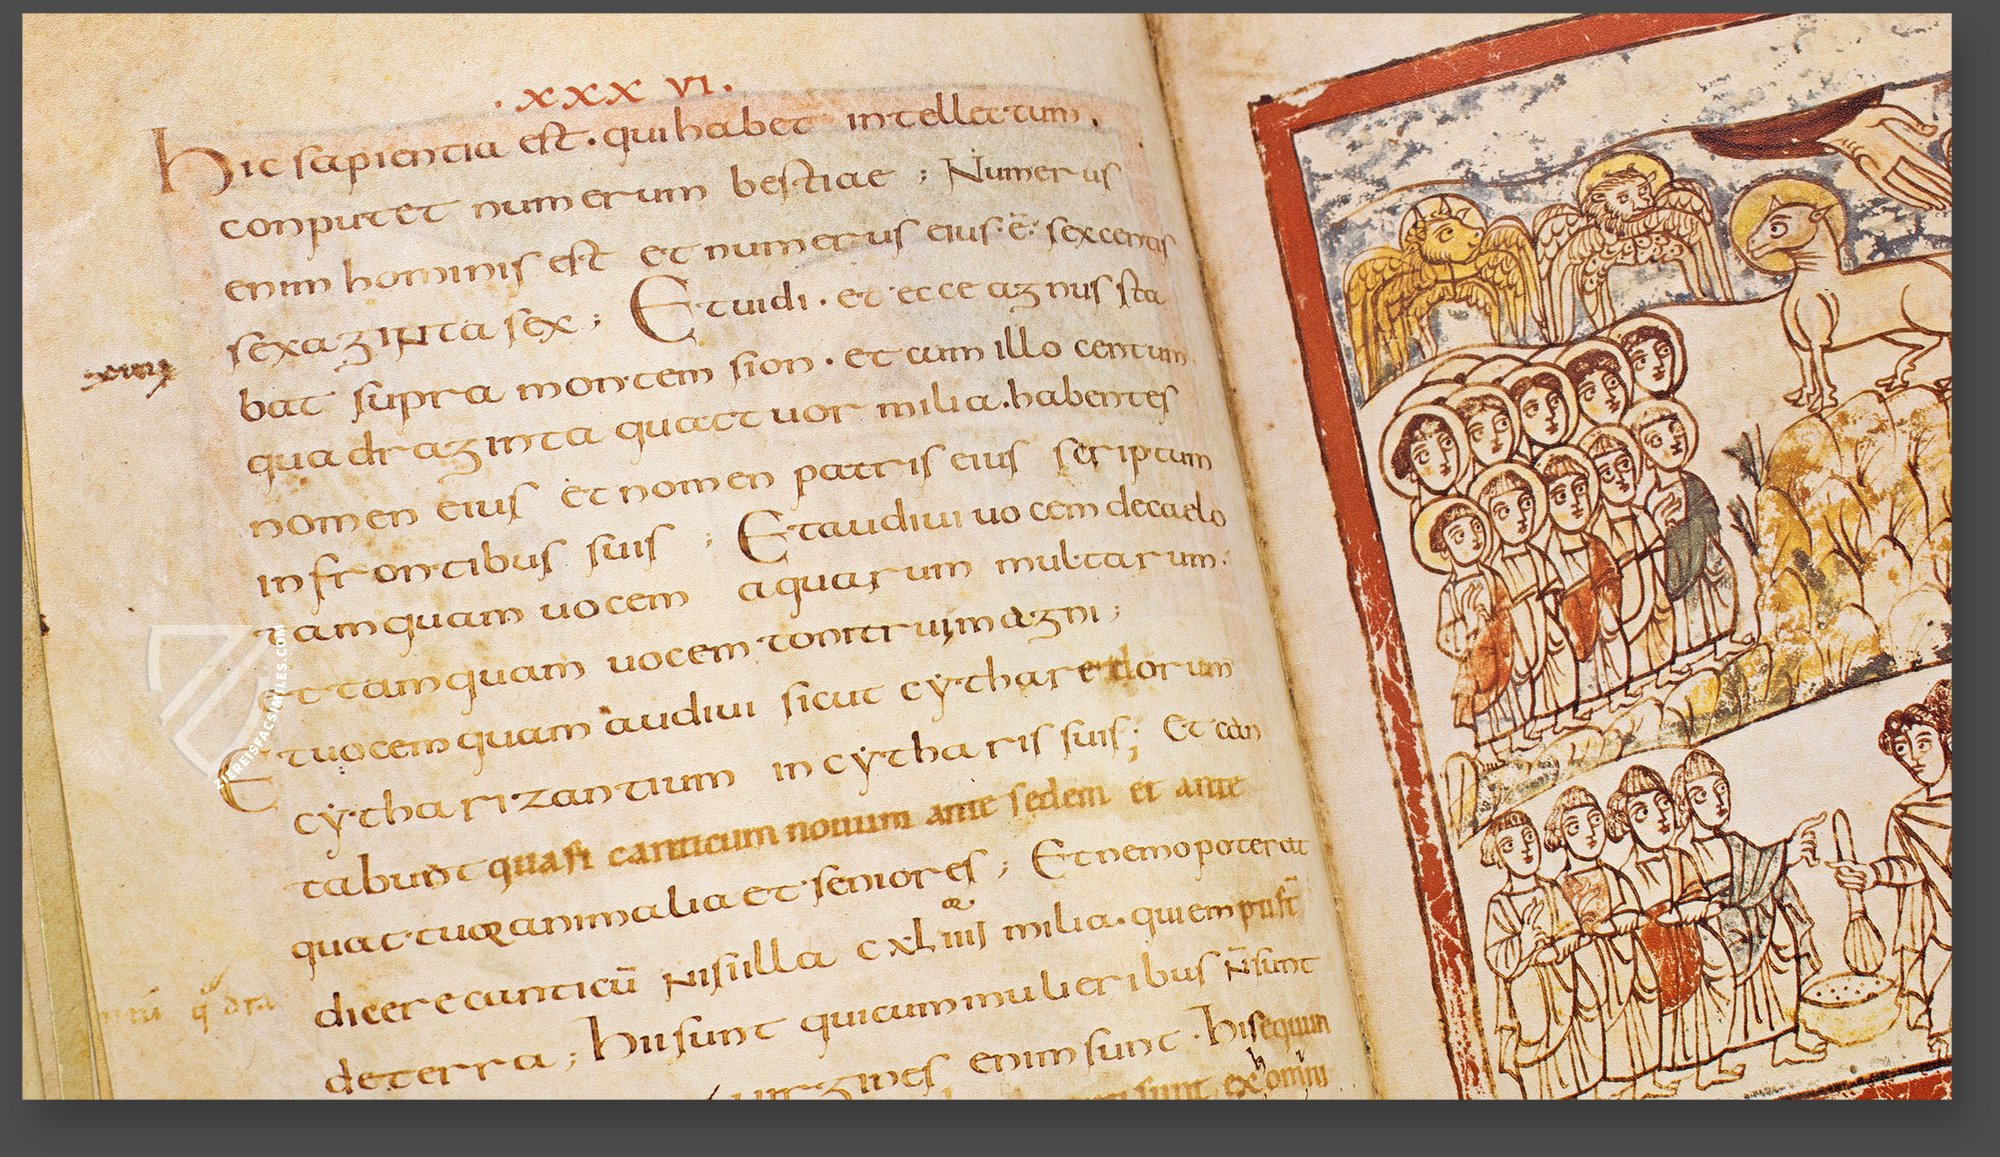 .xxxvi.
Hic sapientia est. qui habet intellectum.
conputet numerum bestiae; Numerus
enim hominis est et numerus eius ē sexcentis
sexaginta sex; Et uidi. et ecce agnus sta
bat supra montem sion. et cum illo centum
quadraginta quattuor milia. habentes
nomen eius et nomen patris eius scriptum
in frontibus suis; Et audiui uocem de caelo
tamquam uocem aquarum multarum.
et tamquam uocem tonitrui magni;
Et uocem quam audiui sicut cytharedorum
cytharizantium in cytharis suis; Et can
tabunt quasi canticum nouum ante sedem et ante
quattuor animalia et seniores; Et nemo poterat
dicere canticū nisi illa cxliiii milia. qui empti st̄
de terra; Hii sunt qui cum mulieribus n̄ sunt
uirgines enim sunt. Hi sequun
sunt ex omni
ZIEREISFACSIMILES.COM